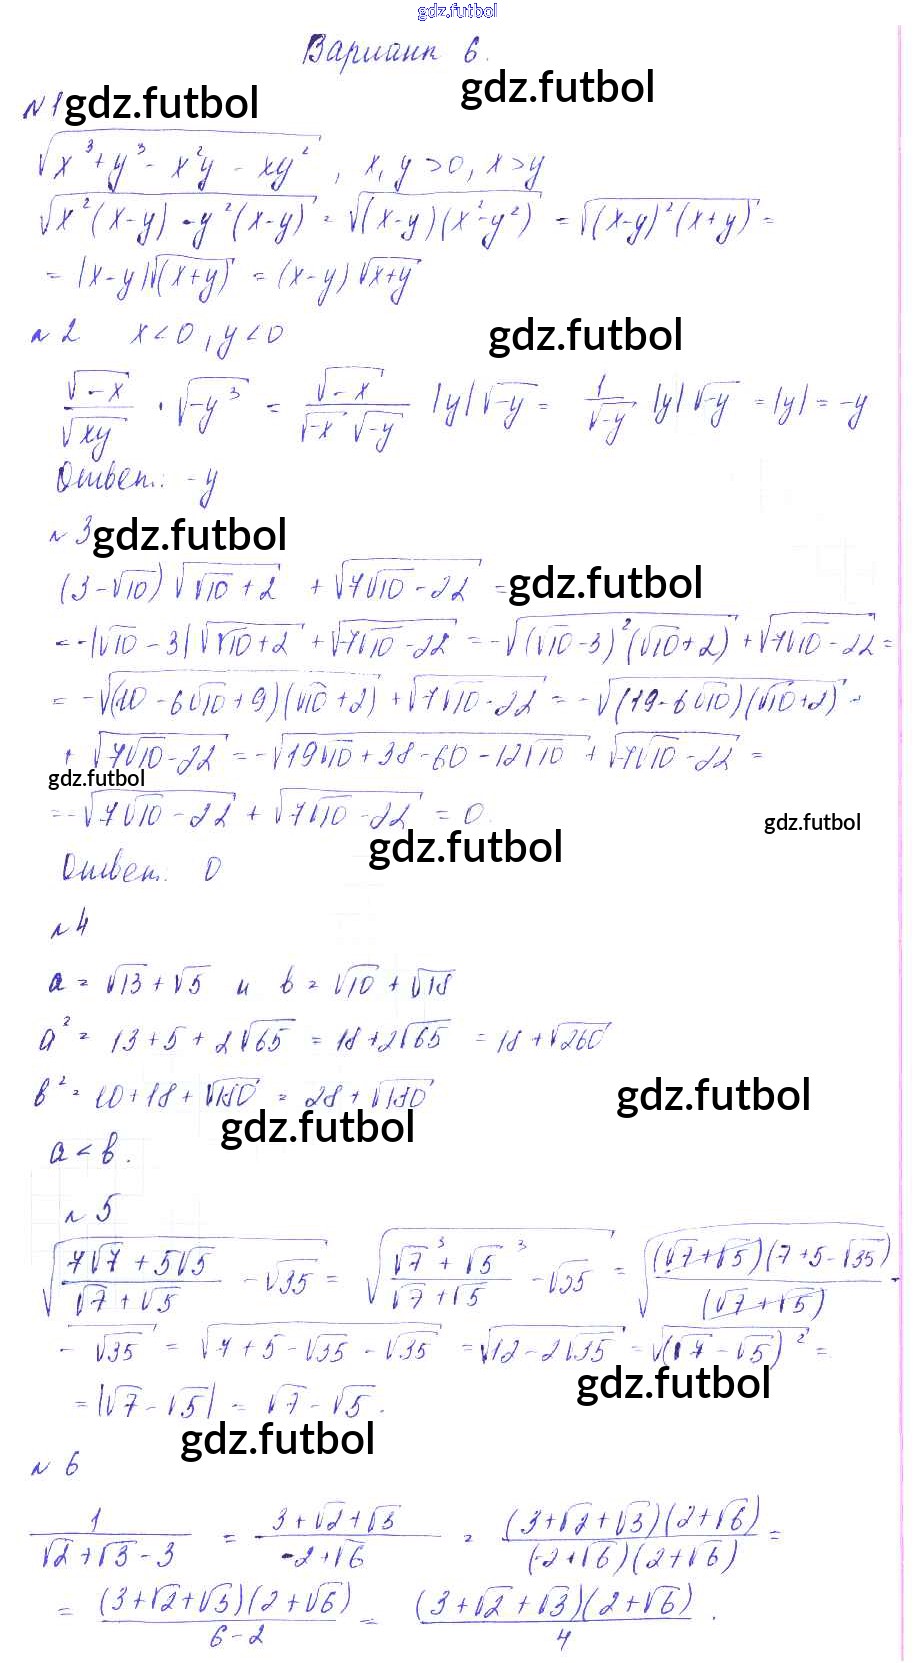 gdz.futbol
Вариант 6.
№1 gdz.futbol gdz.futbol
√(x³+y³-x²y-xy²), x,y>0, x>y
√(x²(x-y)-y²(x-y)) = √((x-y)(x²-y²)) = √((x-y)²(x+y)) =
= |x-y|√(x+y) = (x-y)√(x+y)
№2 x<0, y<0 gdz.futbol
√(-x)/√(xy) · √(-y³) = √(-x)/(√(-x) √(-y)) |y|√(-y) = 1/√(-y) |y|√(-y) = |y| = -y
Ответ: -y
№3 gdz.futbol
(3-√10)√(√10+2) + √(7√10-22) = gdz.futbol
= -|√10-3|√(√10+2) + √(7√10-22) = -√((√10-3)²(√10+2)) + √(7√10-22) =
= -√((10-6√10+9)(√10+2)) + √(7√10-22) = -√((19-6√10)(√10+2)) +
+ √(7√10-22) = -√(19√10+38-60-12√10) + √(7√10-22) =
gdz.futbol
= -√(7√10-22) + √(7√10-22) = 0.
gdz.futbol
gdz.futbol
Ответ. 0
№4
a = √13+√5 и b = √10+√18
a² = 13+5+2√65 = 18+2√65 = 18+√260
b² = 10+18+√180 = 28+√180
gdz.futbol
gdz.futbol
a < b.
№5
√((7√7+5√5)/(√7+√5) - √35) = √((√7³+√5³)/(√7+√5) - √35) = √((√7+√5)(7+5-√35)/(√7+√5) -
- √35) = √(7+5-√35-√35) = √(12-2√35) = √((√7-√5)²) =
gdz.futbol
= |√7-√5| = √7-√5.
gdz.futbol
№6
1/(√2+√3-3) = (3+√2+√3)/(-2+√6) = (3+√2+√3)(2+√6)/((-2+√6)(2+√6)) =
= (3+√2+√3)(2+√6)/(6-2) = (3+√2+√3)(2+√6)/4.